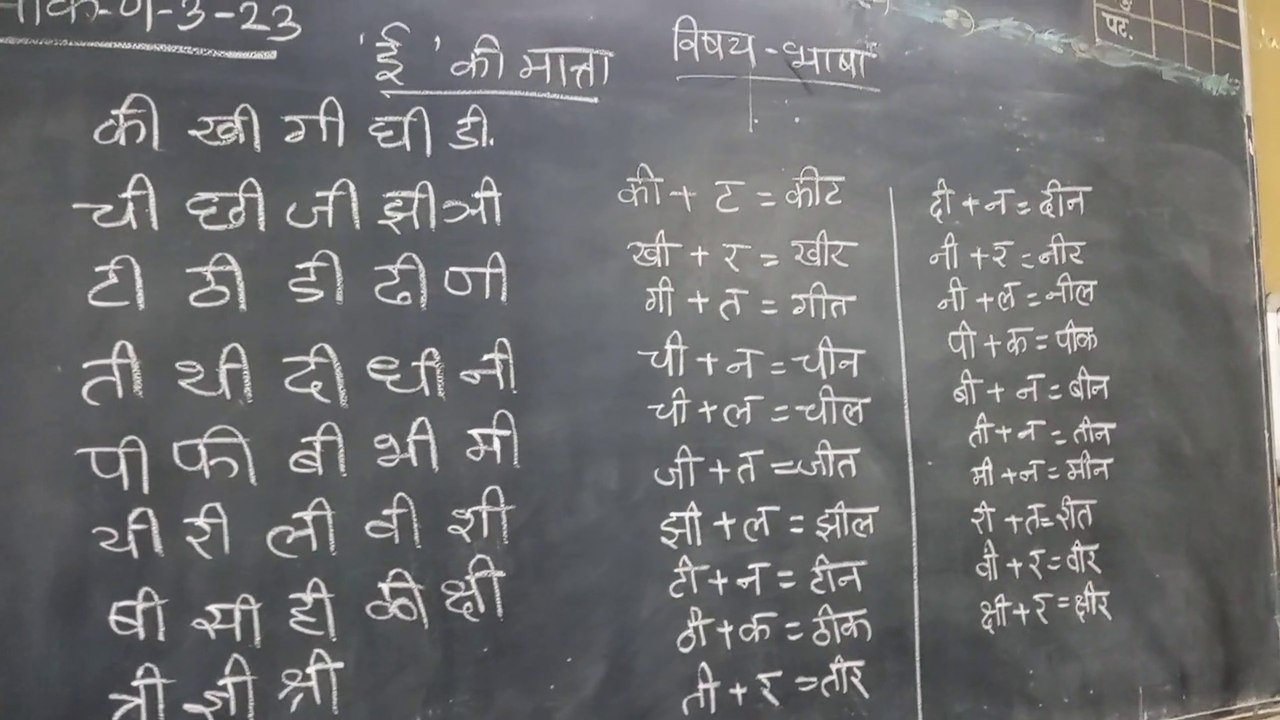 -3-23
'ई' की मात्रा
विषय - भाषा
पट.
की खी गी घी डी.
ची छी जी झी ञी
टी ठी डी ढी णी
ती थी दी धी नी
पी फी बी भी मी
यी री ली वी शी
षी सी ही ळी क्षी
त्री ज्ञी श्री
की + ट = कीट
खी + र = खीर
गी + त = गीत
ची + न = चीन
ची + ल = चील
जी + त = जीत
झी + ल = झील
टी + न = टीन
ठी + क = ठीक
ती + र = तीर
दी + न = दीन
नी + र = नीर
नी + ल = नील
पी + क = पीक
बी + न = बीन
ती + न = तीन
मी + न = मीन
री + त = रीत
वी + र = वीर
क्षी + र = क्षीर